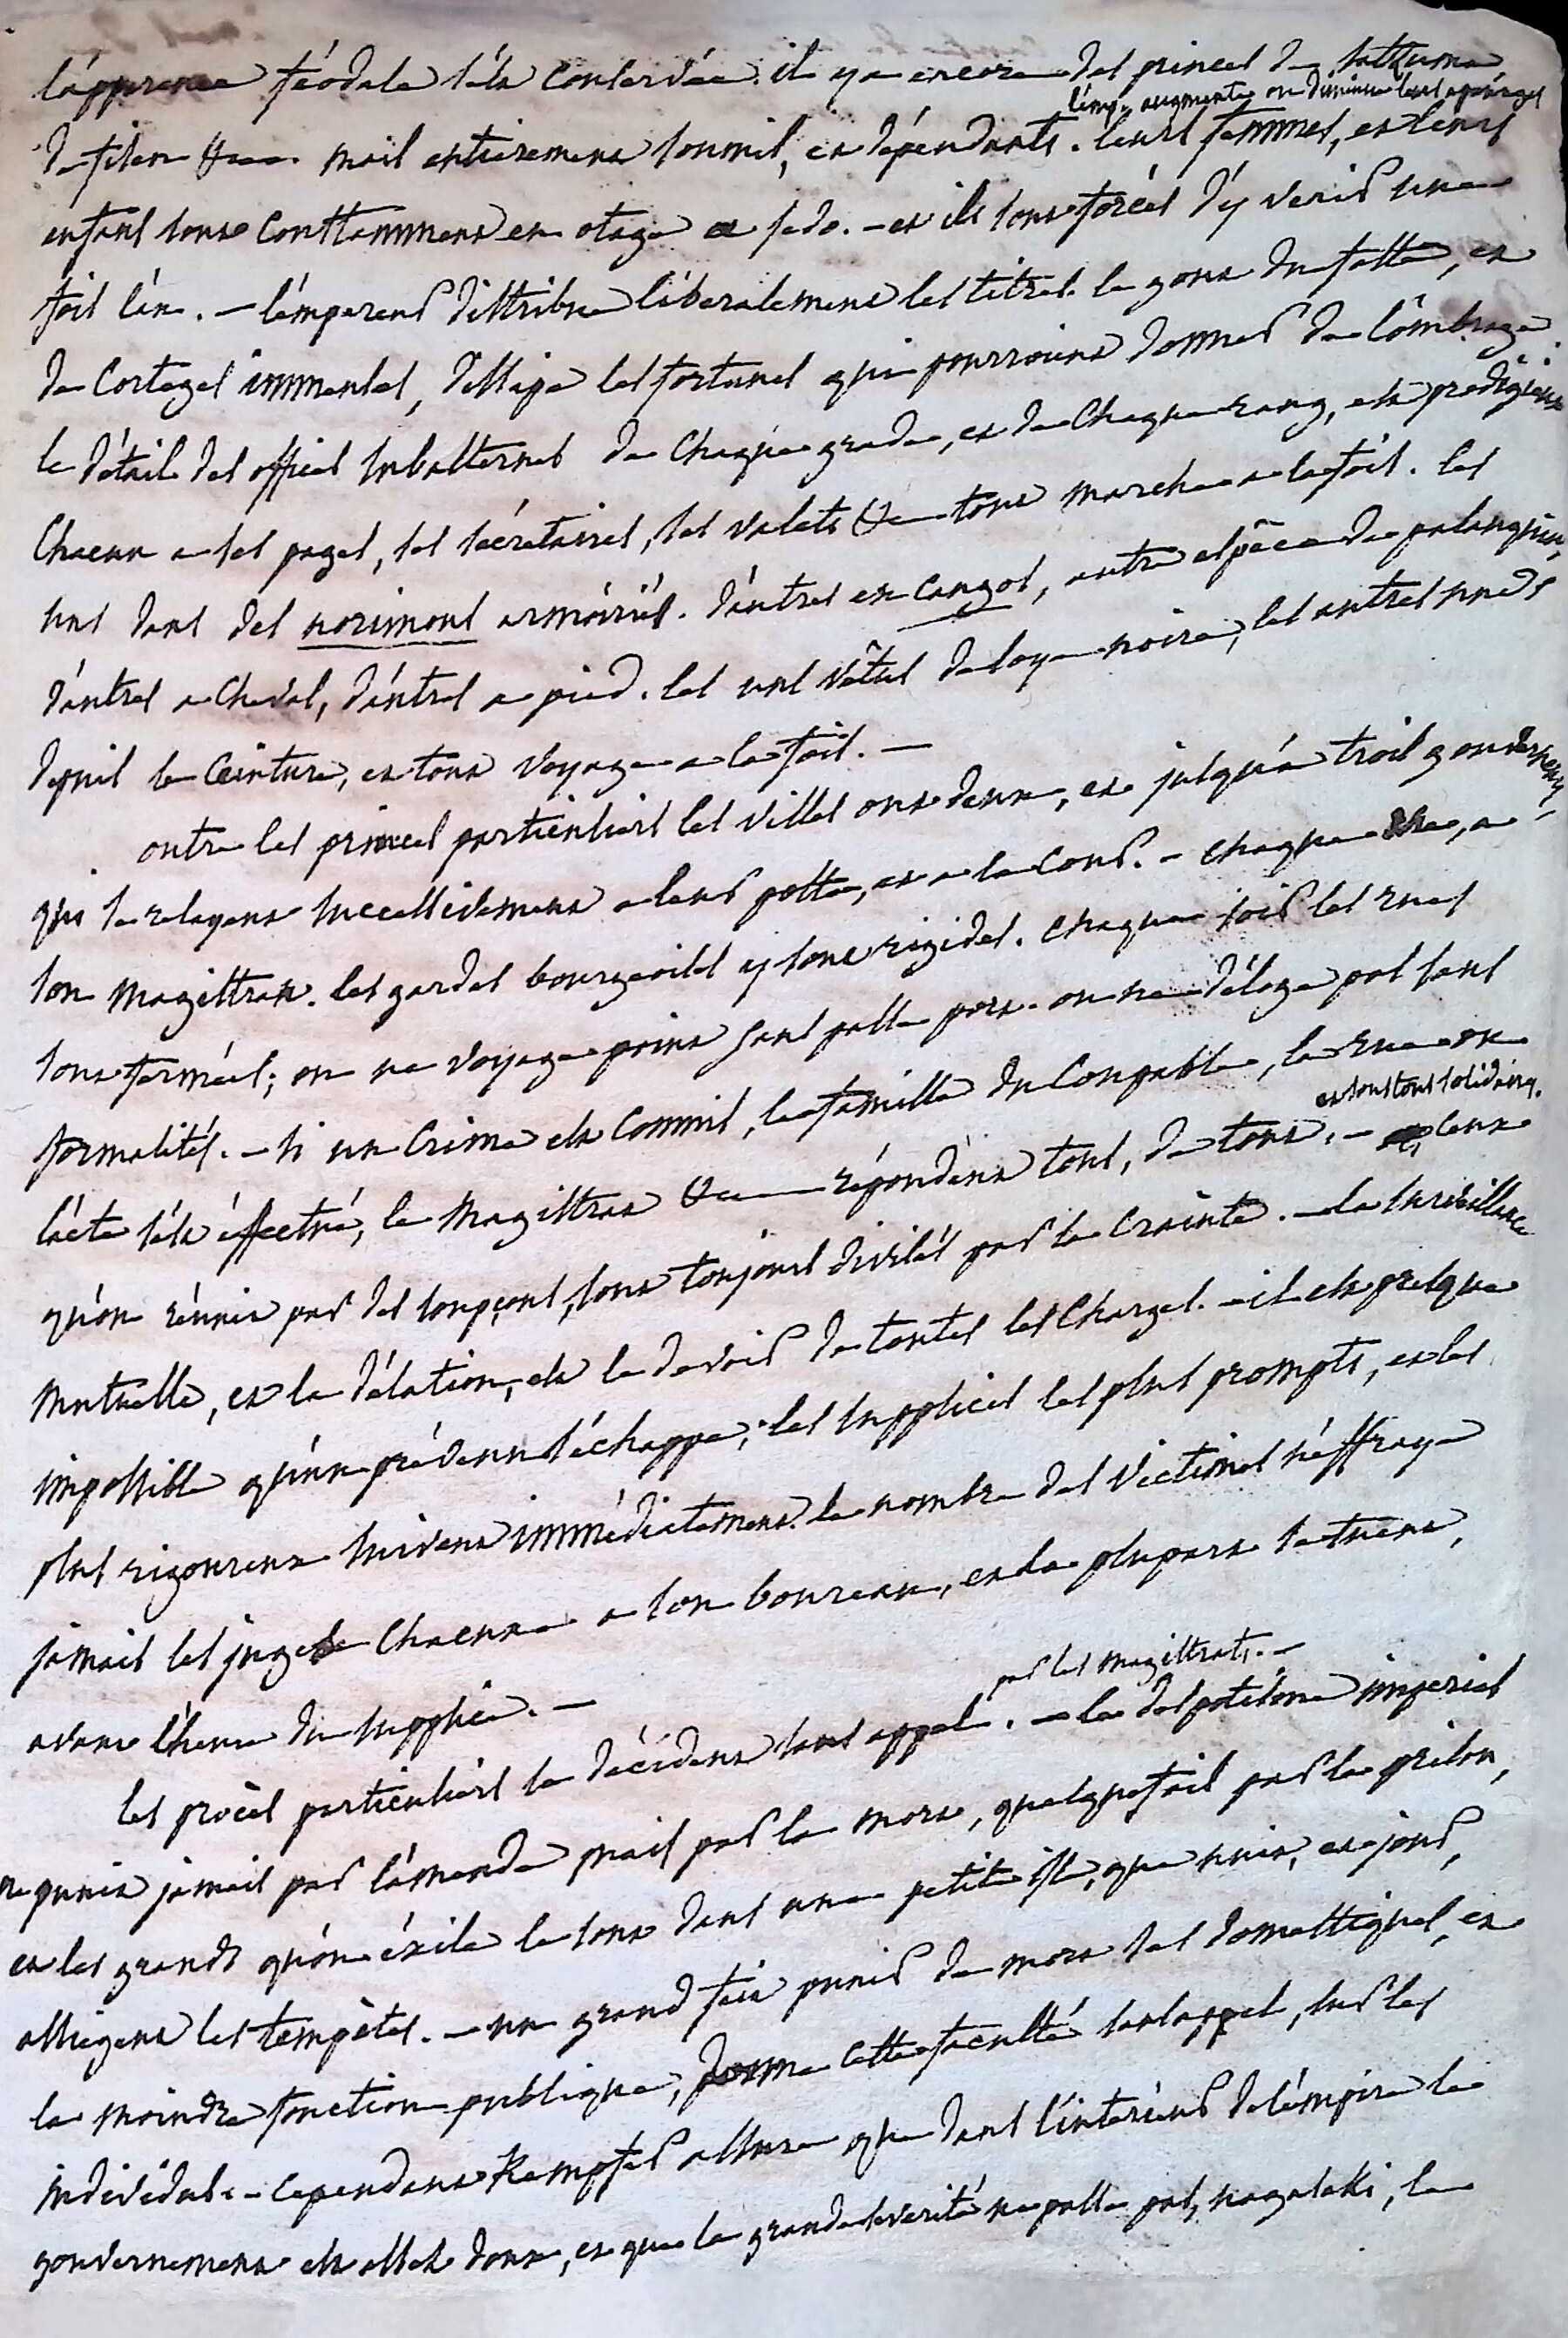 l'apparence féodale s'est conservée. il y a encore des princes de satsuma,
l'emp. augmente ou diminue leurs apanages
de fisen &c. mais entierement soumis, et dépendants. leurs femmes, et leurs
enfans sont constamment en otage a jedo. - et ils sont forcés d'y venir une
fois l'an. - l'empereur distribue libéralement les titres. le gout du faste, et
de corteges immenses, dissipe les fortunes qui pourroient donner de l'ombrage.
le détail des offices subalternes de chaque grade, et de chaque rang, est prodigieux
chacun a ses pages, ses sécrétaires, ses valets &c tout marche a la fois. les
uns dans des norimons armoiriés. d'autres en cangos, autre espêce de palanquin,
d'autres a cheval, d'autres a pied. les uns vêtus de soye noire, les autres nuds
depuis la ceinture, et tout voyage a la fois. -
outre les princes particuliers les villes ont deux, et jusqu'a trois gouverneurs,
qui se relayent successivement a leur poste, et a la cour. - chaque rue, a
son magistrat. les gardes bourgeoises y sont rigides. chaque soir les rues
sont fermées; on ne voyage point sans passe port. on ne déloge pas sans
formalités. - si un crime est commis, la famille du coupable, la rue ou
l'acte s'est éffectué, le magistrat &c répondent tous, de tout. -
et sont tous solidaires.
ceux
qu'on réunit par des soupçons, sont toujours divisés par la crainte. - la surveillance
mutuelle, et la délation, est le devoir de toutes les charges. - il est presque
impossible qu'un prévenu s'échappe; les supplices les plus prompts, et les
plus rigoureux suivent immédiatement. le nombre des victimes n'éffraye
jamais les juges chacun a son boureau, et la plupart se tuent,
avant l'heure du supplice. -
par les magistrats. -
les procès particuliers se décident sans appel. - le despotisme imperial
ne punit jamais par l'amende mais par la mort, quelquefois par la prison,
et les grands qu'on éxile le sont dans une petite isle, que nuit, et jour,
assiegent les tempêtes. - un grand fait punir de mort ses domestiques, et
la moindre fonction publique, donne cette faculté sans appel, sur les
individus. - cependant Kempfer assure que dans l'interieur de l'empire le
gouvernement est assez doux, et que la grande severité ne passe pas nagasaki, le